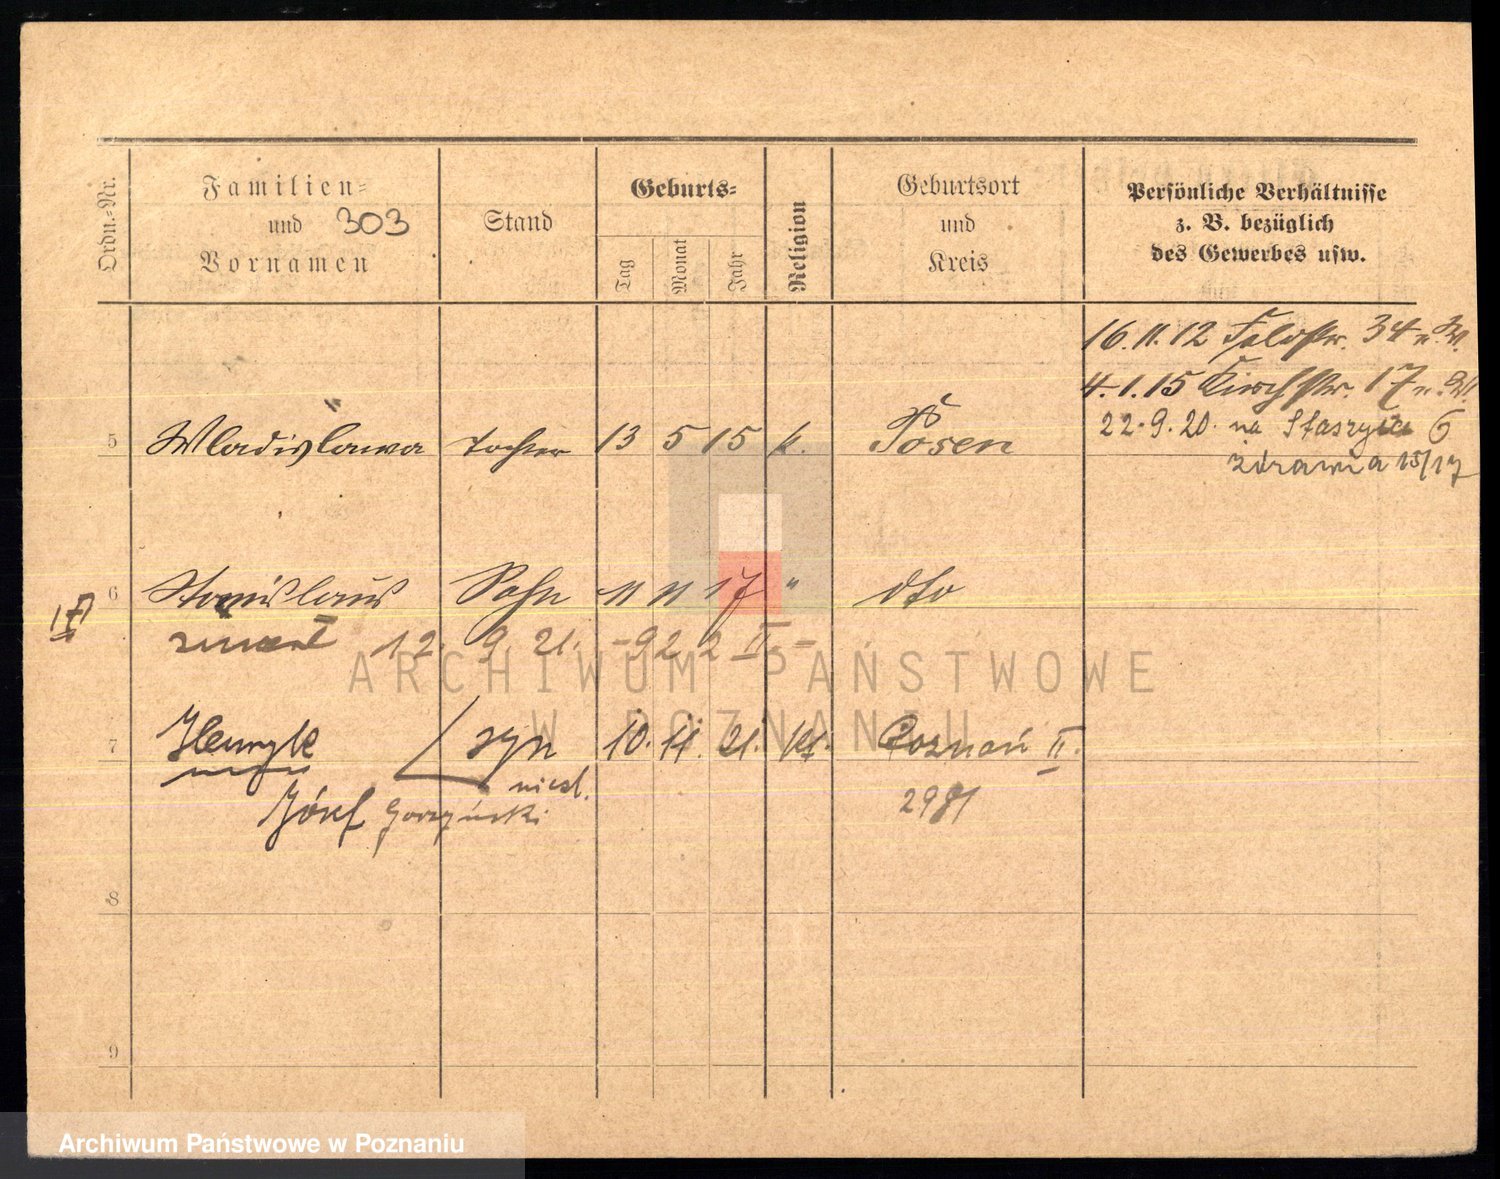 Ordn.-Nr.
Familien-
und 303
Vornamen
Stand
Geburts-
Tag
Monat
Jahr
Religion
Geburtsort
und
Kreis
Persönliche Verhältnisse
z. B. bezüglich
des Gewerbes usw.
16.11.12 Feldstr. 34 n. W.
4.1.15 Kirchstr. 17 n. W.
22.9.20. na Staszyca 6
5 Wladislawa Tochter 13 5 15 k. Posen
15/17
6 Stanislaus Sohn 11 11 17 " dto
zmarł 12. 9. 21. -922 II.-
7 Henryk syn 10. 11. 21. kt. Poznań II.
niesl.
Józef Gorzyński
2981
8
9
ARCHIWUM PAŃSTWOWE
W POZNANIU
Archiwum Państwowe w Poznaniu